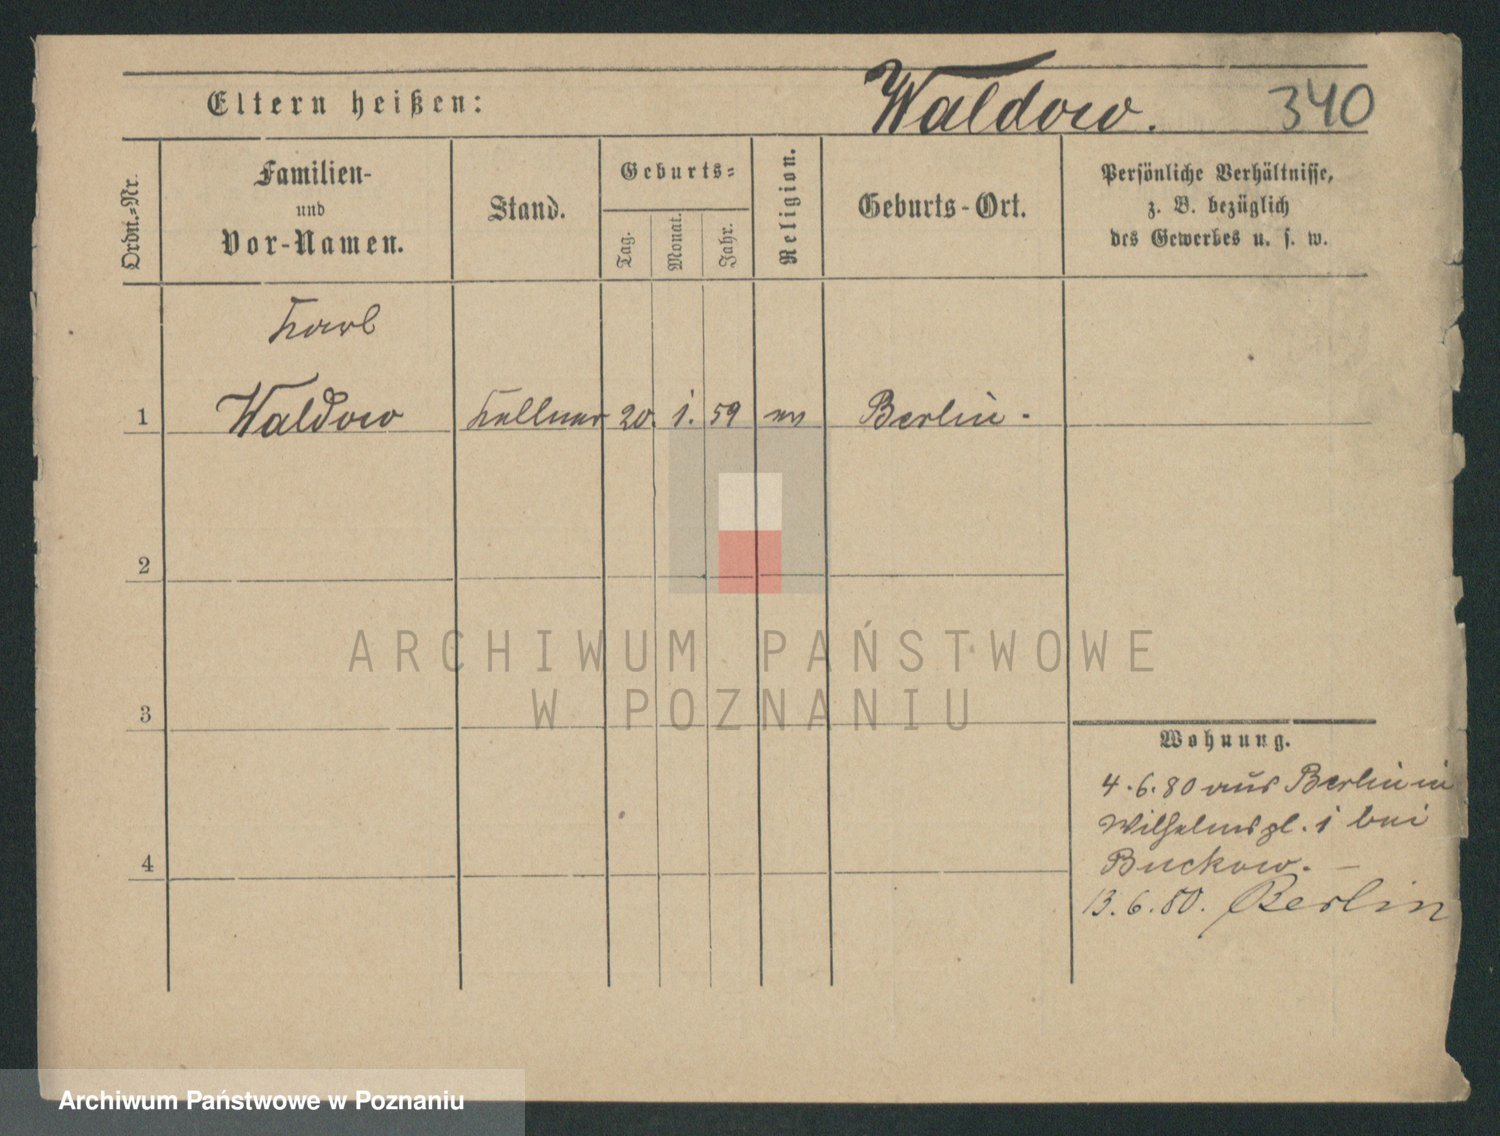 Eltern heißen: Waldow. 340
Ordn.=Nr.
Familien-
und
Vor-Namen.
Stand.
Geburts=
Tag. Monat. Jahr.
Religion.
Geburts-Ort.
Persönliche Verhältnisse,
z. B. bezüglich
des Gewerbes u. s. w.
Karl
1 Waldow Kellner 20. 1. 59 ev Berlin.
2
3
4
ARCHIWUM PAŃSTWOWE
W POZNANIU
Wohnung.
4.6.80 aus Berlin in
Wilhelmspl. 1 bei
Buckow. —
13.6.80. Berlin
Archiwum Państwowe w Poznaniu